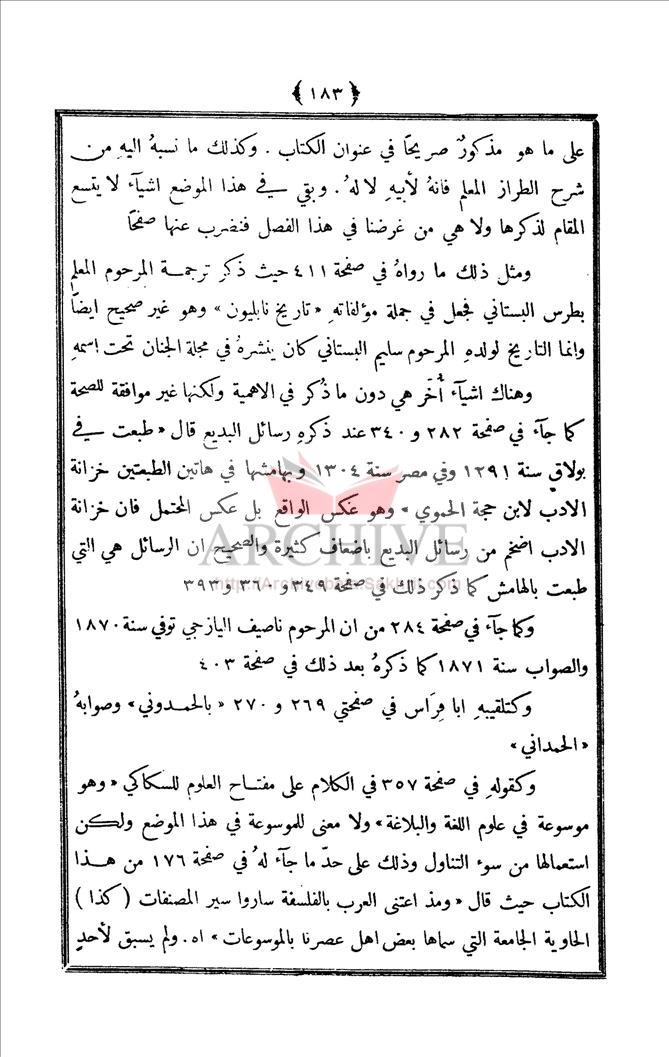 ﴿ ١٨٣ ﴾
على ما هو مذكورٌ صريحًا في عنوان الكتاب . وكذلك ما نسبهُ اليهِ من
شرح الطراز المعلم فانهُ لأبيهِ لا لهُ . وبقي في هذا الموضع اشيآء لا يتسع
المقام لذكرها ولا هي من غرضنا في هذا الفصل فنضرب عنها صفحًا
ومثل ذلك ما رواهُ في صفحة ٤١١ حيث ذكر ترجمـة المرحوم المعلم
بطرس البستاني فجعل في جملة مؤلفاتهِ « تاريخ نابليون » وهو غير صحيح ايضًا
وانما التاريخ لولدهِ المرحوم سليم البستاني كان ينشرهُ في مجلة الجنان تحت اسمهِ
وهناك اشيآء أُخَر هي دون ما ذُكر في الاهمية ولكنها غير موافقة للصحة
كما جآء في صفحة ٢٨٢ و ٣٤٠ عند ذكرهِ رسائل البديع قال « طبعت في
بولاق سنة ١٢٩١ وفي مصر سنة ١٣٠٤ وبهامشها في هاتين الطبعتين خزانة
الادب لابن حجة الحموي » وهو عكس الواقع بل عكس المحتمل فان خزانة
الادب اضخم من رسائل البديع باضعاف كثيرة والصحيح ان الرسائل هي التي
طبعت بالهامش كما ذكر ذلك في صفحة ٣٤٩ و ٣٦٠ و ٣٩٣
وكما جآء في صفحة ٢٨٤ من ان المرحوم ناصيف اليازجي توفي سنة ١٨٧٠
والصواب سنة ١٨٧١ كما ذكرهُ بعد ذلك في صفحة ٤٠٣
وكتلقيبهِ ابا فِرَاس في صفحتي ٢٦٩ و ٢٧٠ « بالحمـدوني » وصوابهُ
« الحمداني »
وكقولهِ في صفحة ٣٥٧ في الكلام على مفتـاح العلوم للسكاكي « وهو
موسوعة في علوم اللغة والبلاغة » ولا معنى للموسوعة في هذا الموضع ولكن
استعمالها من سوء التناول وذلك على حدّ ما جآء لهُ في صفحة ١٧٦ من هـذا
الكتاب حيث قال « ومذ اعتنى العرب بالفلسفة ساروا سير المصنفات ( كذا )
الحاوية الجامعة التي سماها بعض اهل عصرنا بالموسوعات » اه . ولم يسبق لأحدٍ
ARCHIVE